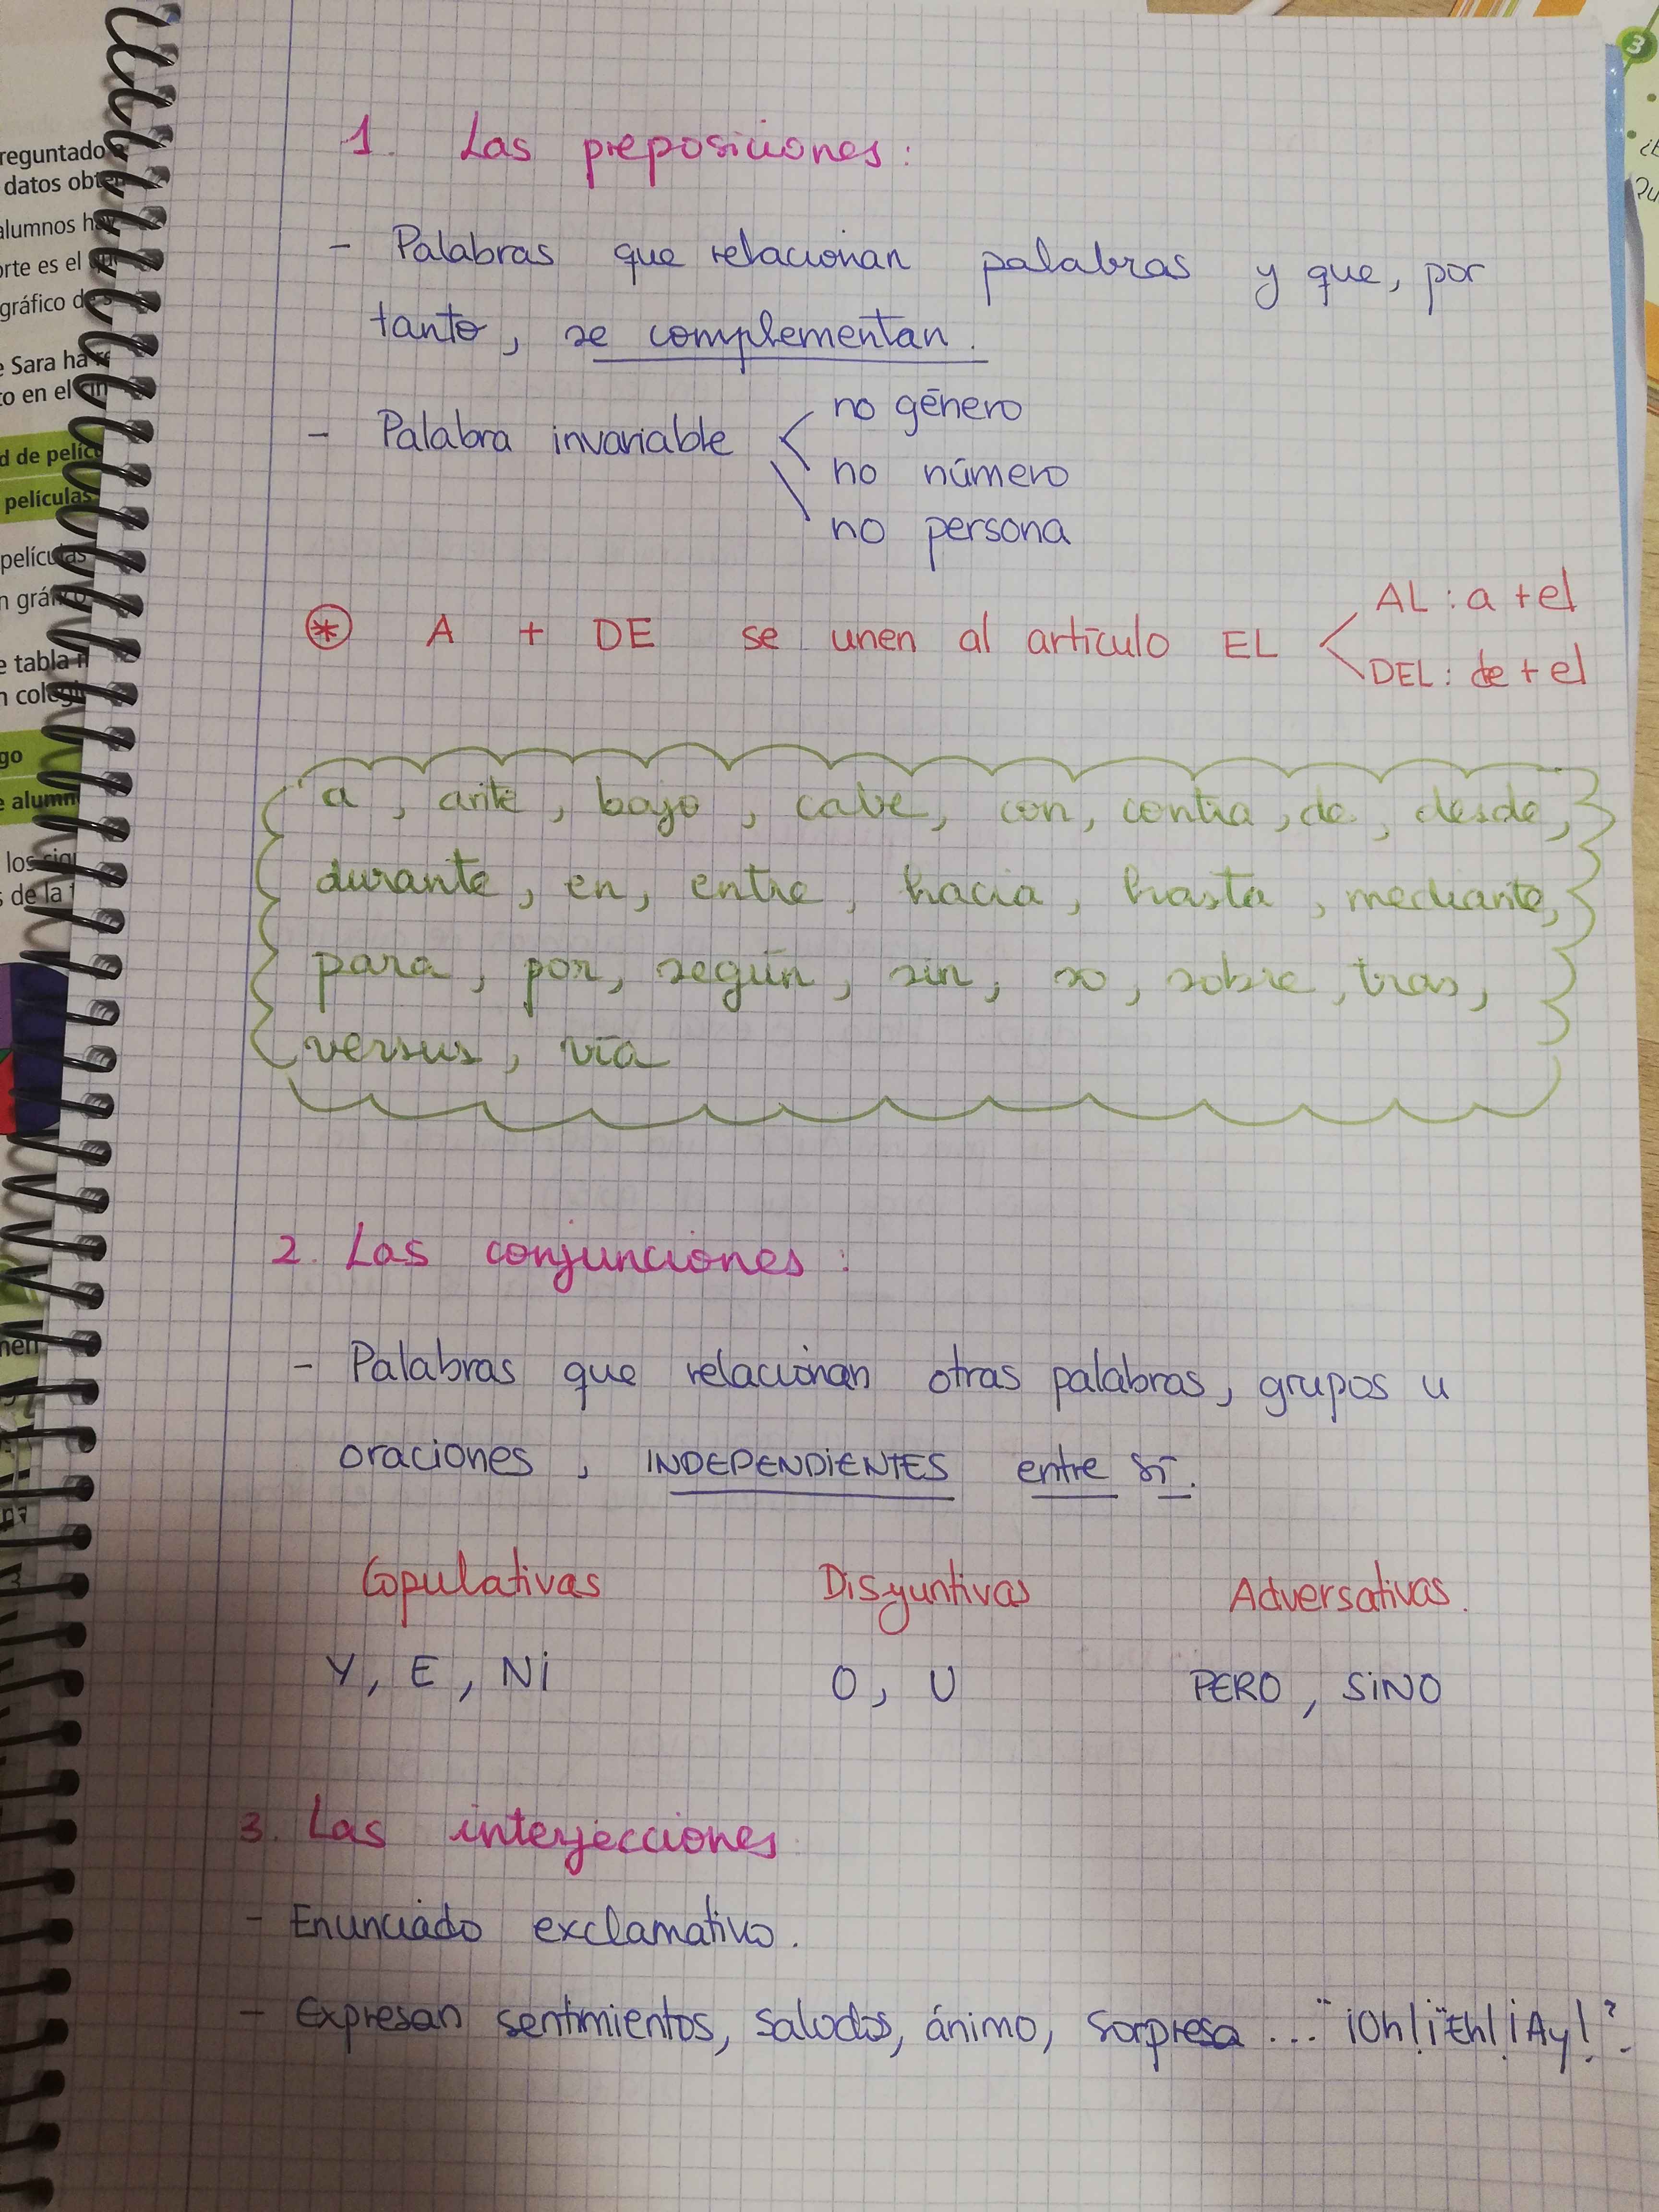 1. Las preposiciones:
- Palabras que relacionan palabras y que, por
tanto, se complementan.
- Palabra invariable
no género
no número
no persona
* A + DE se unen al artículo EL
AL: a + el
DEL: de + el
a, ante, bajo, cabe, con, contra, de, desde,
durante, en, entre, hacia, hasta, mediante,
para, por, según, sin, so, sobre, tras,
versus, vía
2. Las conjunciones:
- Palabras que relacionan otras palabras, grupos u
oraciones, INDEPENDIENTES entre sí.
Copulativas Disyuntivas Adversativas.
Y, E, Ni O, U PERO, SiNO
3. Las interjecciones
- Enunciado exclamativo.
- Expresan sentimientos, saludos, ánimo, sorpresa... "¡Oh! ¡Eh! ¡Ay!".
reguntado
alumnos
orte es el
gráfico de
Sara ha
to en el
películas
películas
tabla
go
los
de la
3